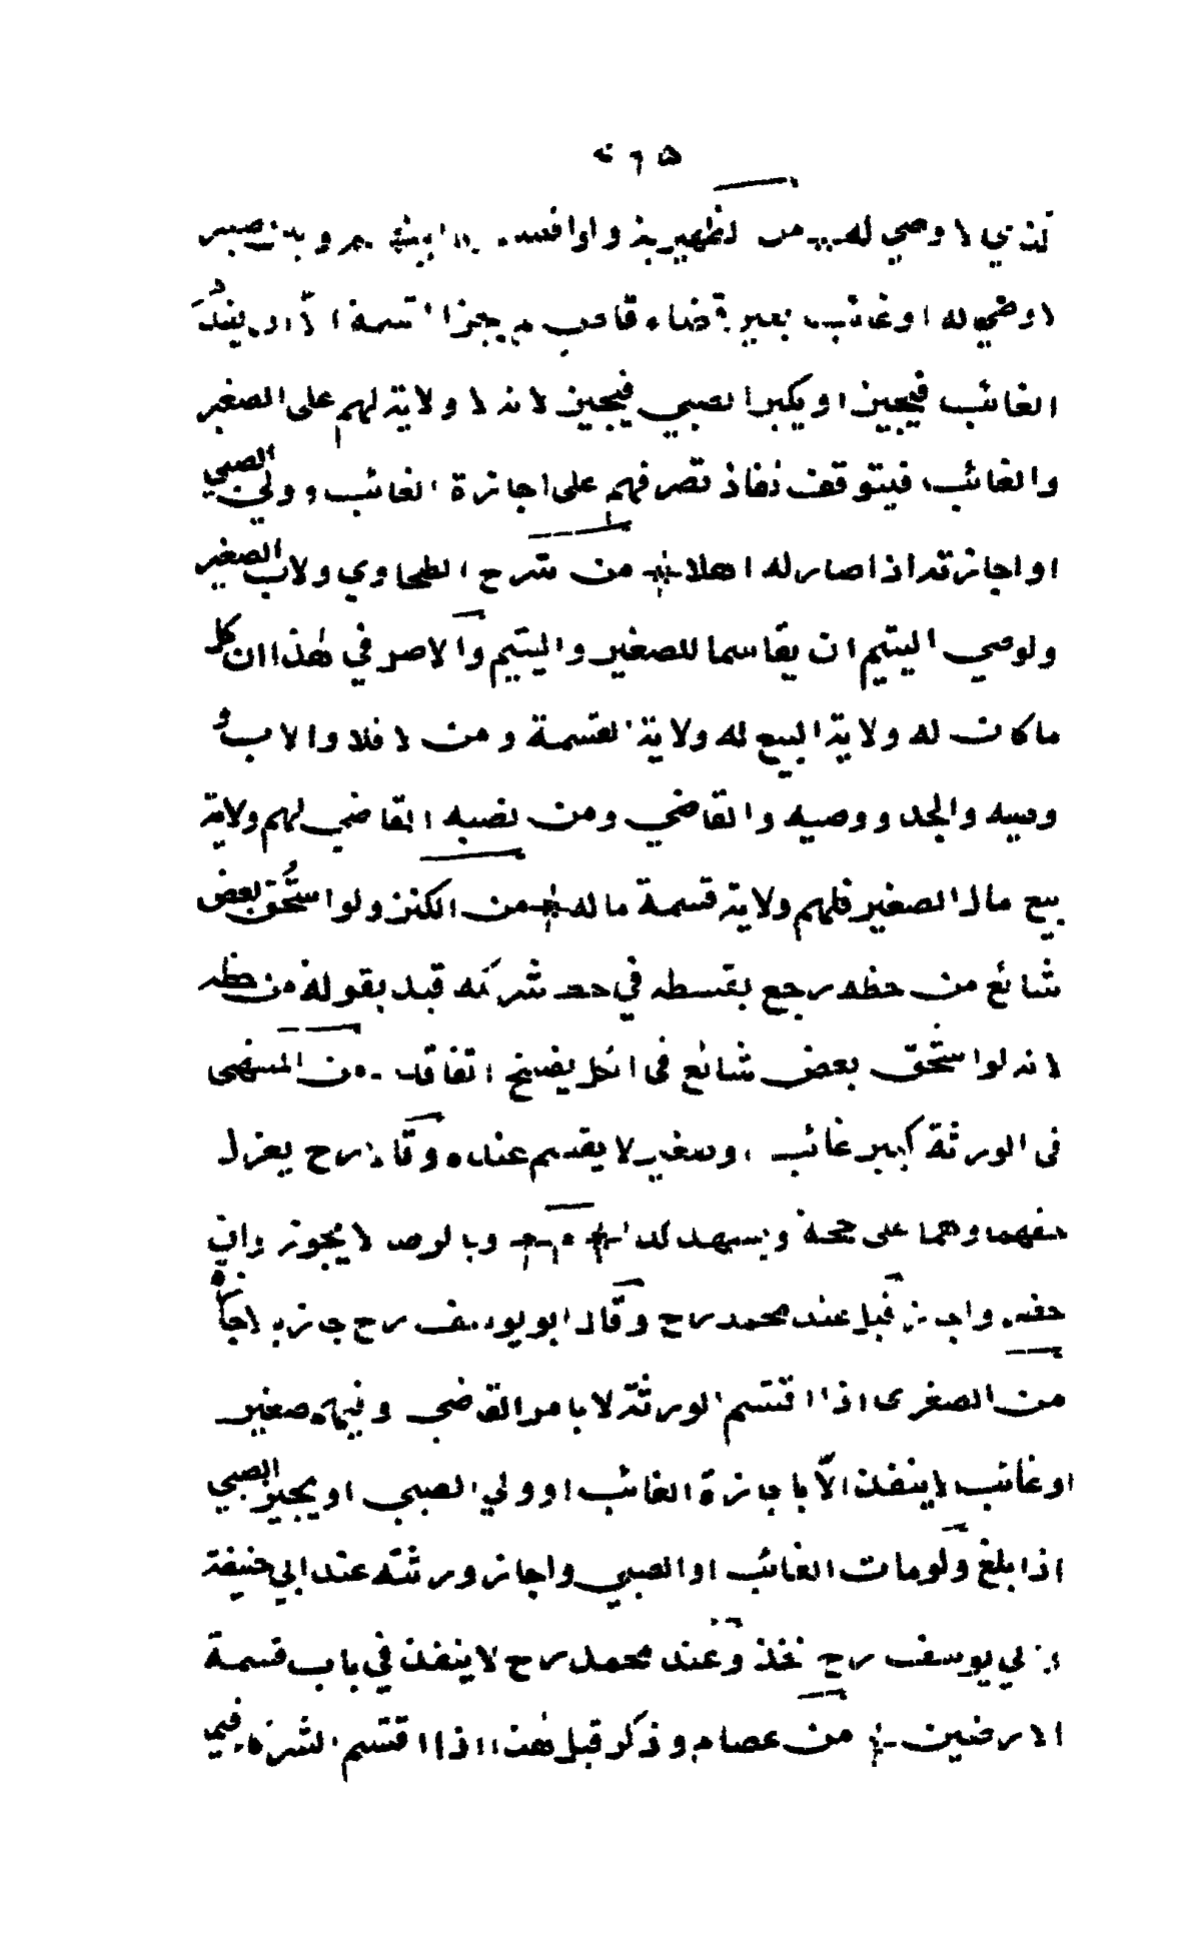 لاوصي له من الظهيرية ولو اقتسم
لاوصي له او غائب بغير قضاء قاض لم يجز القسمة الا ان
الغائب فيجيز او يكبر الصبي فيجيز لانه لا ولاية لهم على الصغير
والغائب فيتوقف نفاذ تصرفهم على اجازة الغائب وولي الصبي
او اجازته اذا صار له اهلا من شرح الطحاوي ولاب الصغير
ولوصي اليتيم ان يقاسما للصغير واليتيم والاصل في هذا ان كل
ما كان له ولاية البيع له ولاية القسمة ومن لا فلا والاب و
وصيه والجد ووصيه والقاضي ومن نصبه القاضي لهم ولاية
بيع مال الصغير فلهم ولاية قسمة ماله من الكنز ولو استحق بعض
شائع من حظه رجع بقسطه في حظ شريكه قيد بقوله من حظه
لانه لو استحق بعض شائع في الكل يفسخ اتفاقا من المستصفى
في الورثة كبير غائب او صغير لا يقسم عنده وقالا رح يعزل
حقهما وهما على حجة ويشهد وان
حقه قبل عند محمد رح وقال ابو يوسف رح جاز
من الصغرى اذا اقتسم الورثة لا بامر القاضي وفيهم صغير
او غائب لاينفذ الا باجازة الغائب او ولي الصبي او يجيز الصبي
اذا بلغ ولو مات الغائب او الصبي واجاز ورثته عند ابي حنيفة
وابي يوسف رح نفذ وعند محمد رح لا ينفذ في باب قسمة
الارضين من عصام وذكر قبل هذا اذا اقتسم الشركاء فيما